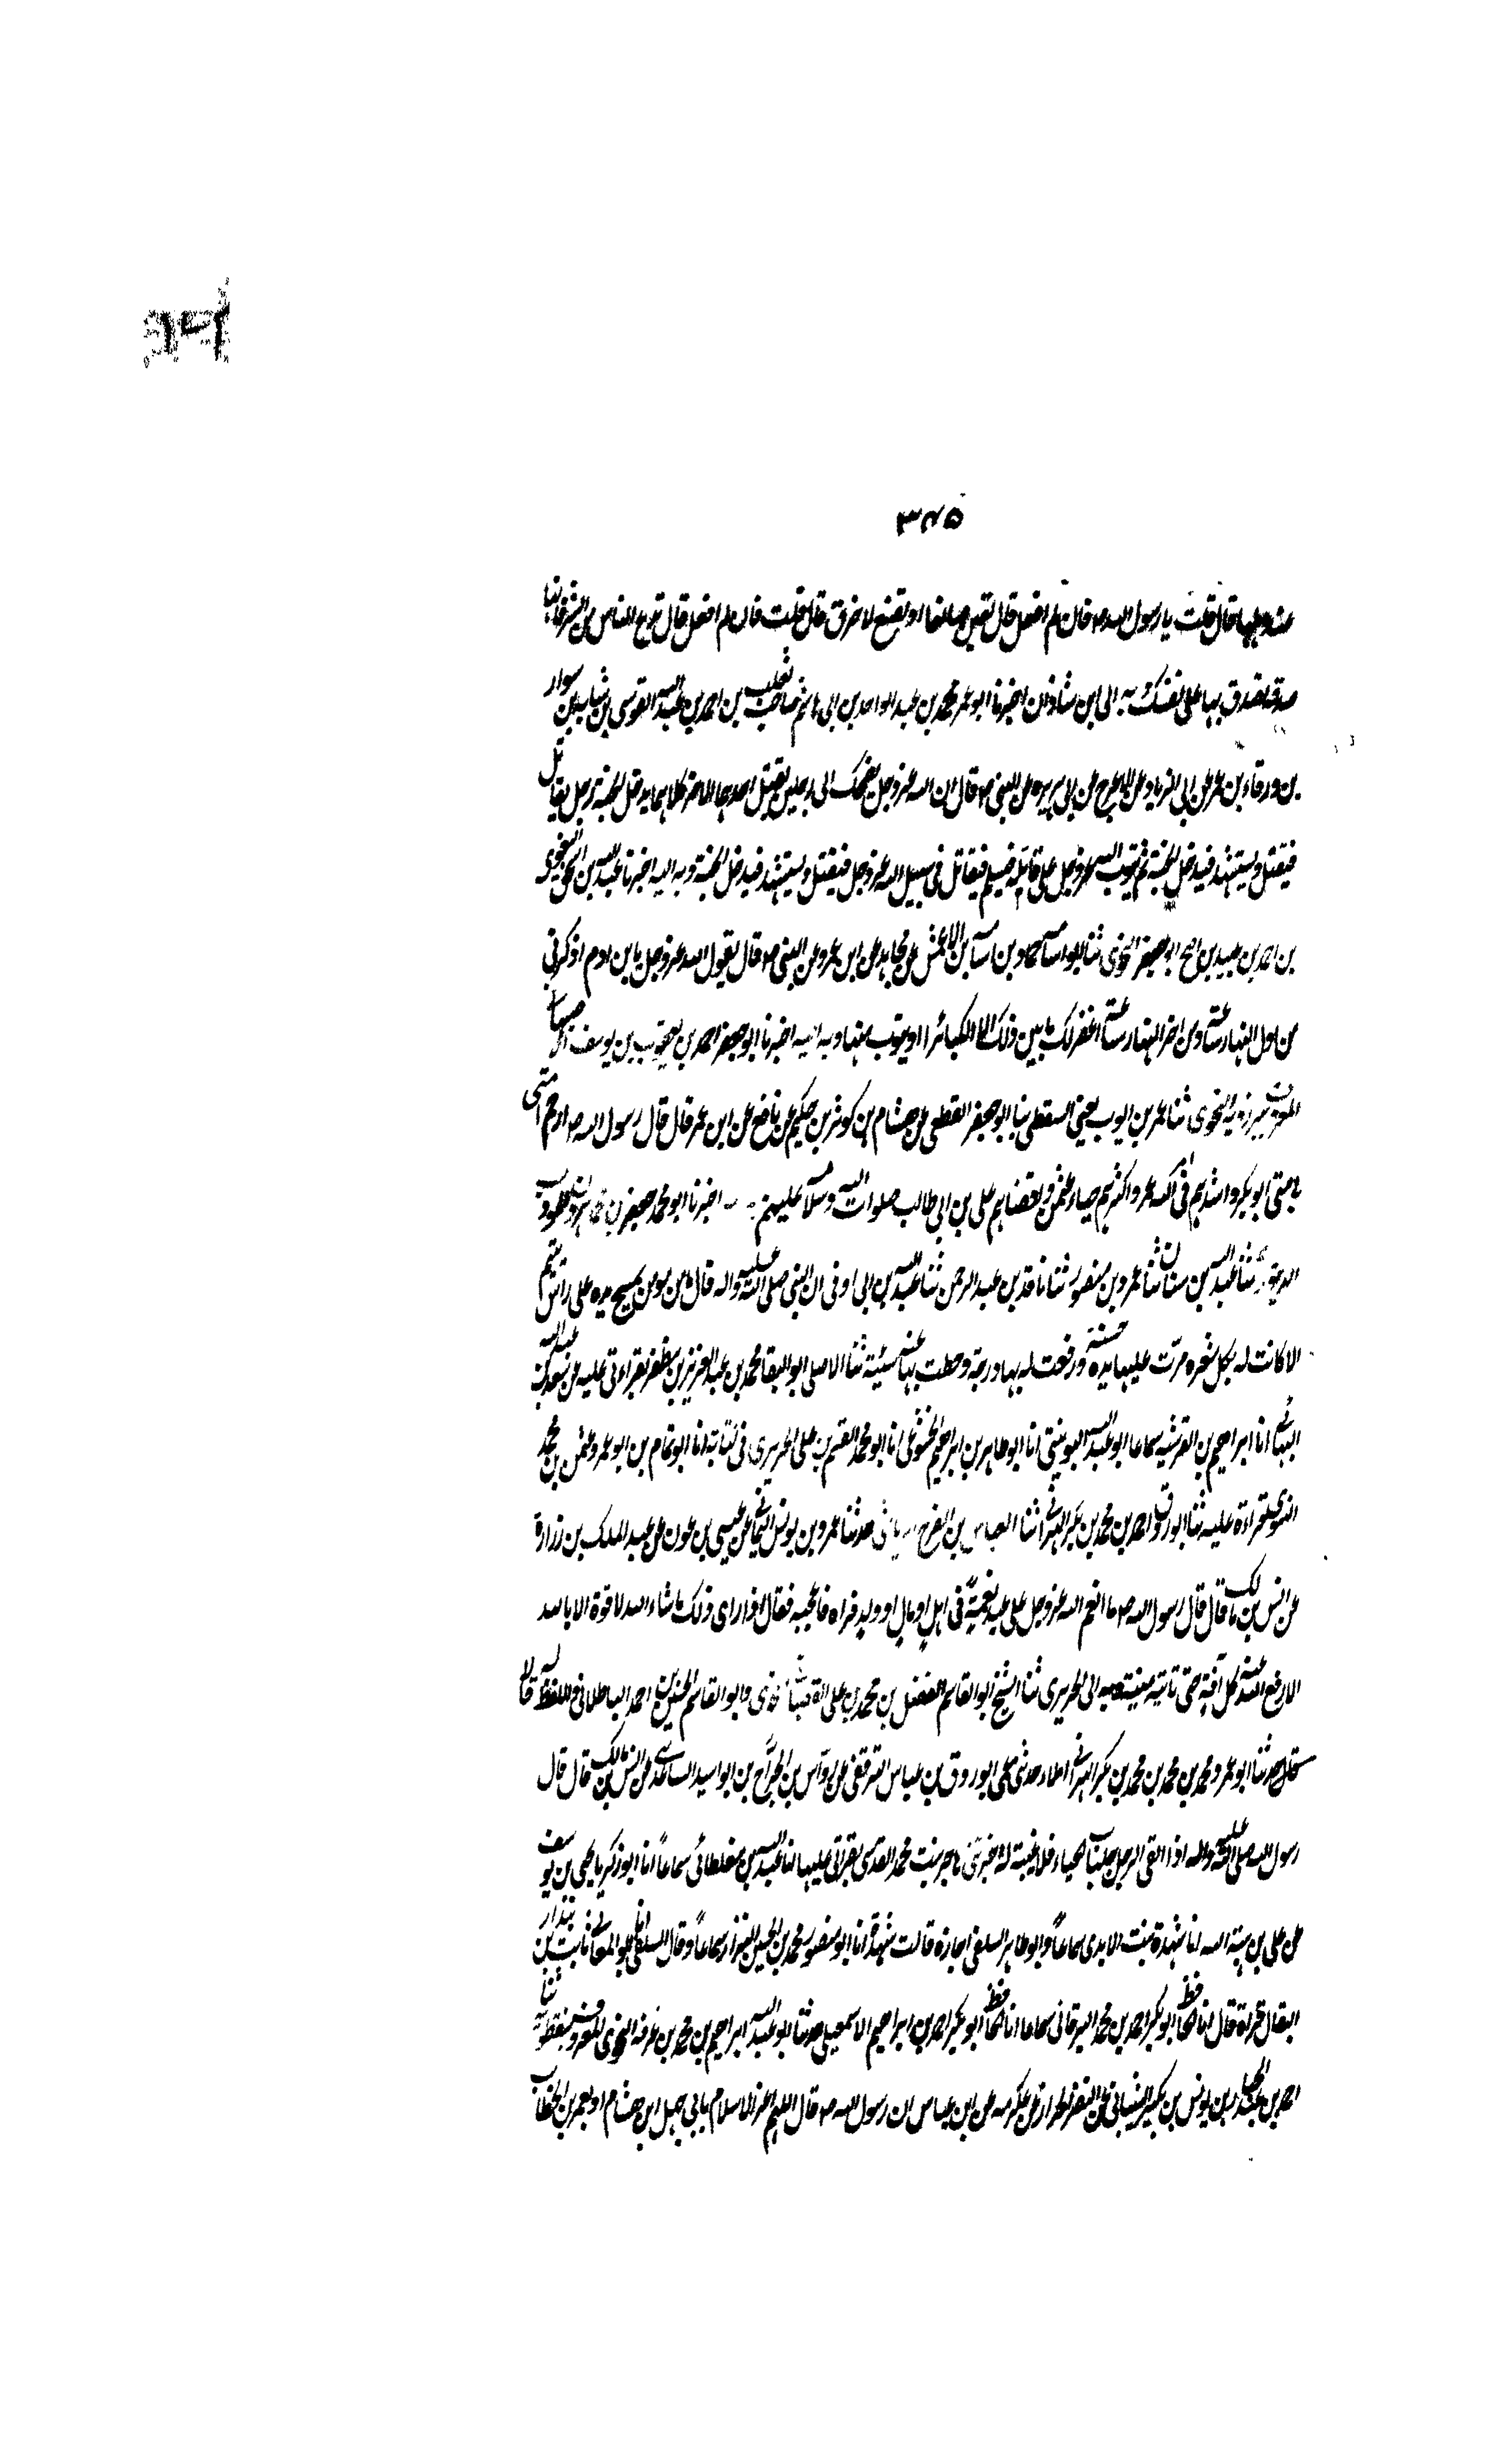 ۳۴۵
قال قلت يا رسول الله صہ فان لم افعل قال تعين صانعا او تصنع لاخرق قال قلت فان لم افعل قال تدع الناس من الشر فانها
صدقة تصدق بها على نفسك وبہ الى ابن شاذان اخبرنا ابو عمر محمد بن عبد الواحد بن ابى ہاشم صاحب ثعلب بن احمد بن عبد الله بن سوار
بن ورقاء بن عمر عن ابى الزناد عن الاعرج عن ابى ہريرہ عن النبى صہ قال ان الله عز وجل يضحك الى رجلين يقتل احدہما الاخر كلاہما يدخل الجنة رجل يقاتل
فيقتل ويستشہد فيدخل الجنة ثم يتوب الله عز وجل على قاتلہ فيسلم فيقاتل فى سبيل الله عز وجل فيقتل ويستشہد فيدخل الجنة وبہ اليہ اخبرنا عبد الله بن البغوى
بن احمد بن عبيد بن ابو جعفر النحوى ثنا ابو اسامہ حماد بن اسامہ بن الاعمش عن مجاہد عن ابن عمرو عن النبى صہ قال يقول الله عز وجل يا ابن ادم اذكرنى
من اول النہار ساعة ومن اخر النہار ساعة اغفر لك ما بين ذلك الا الكبائر او يتوب منہا وبہ اليہ اخبرنا ابو جعفر احمد بن يعقوب بن يوسف
النحوى ثنا عمر بن ايوب يعنى السقطى بنا ابو جعفر القطعى عن ہشام بن كوثر بن حكيم عن نافع عن ابن عمر قال قال رسول الله صہ ارحم امتى
بامتى ابو بكر واشدہم فى الله عمر واكثرہم حياء عثمن واقضاہم على بن ابى طالب صلوات الله وسلامہ عليہم اخبرنا ابو محمد جعفر بن
ثنا عبد الله بن سنان ثنا عمرو بن منصور ثنا نافد بن عبد الرحمن ثنا عبد الله بن ابى اوفى ان النبى صلى الله عليہ والہ قال ما من مومن يمسح يدہ على راس يتيم
الا كانت لہ بكل شعرہ مرت عليہا يدہ حسنة ورفعت لہ بہا درجة وحطت بہا عنہ سيئة ثنا الاصلى ابو البقا محمد بن عبد العزيز بن مظفر بقراءتى عليہ عن
انا ابراہيم بن القرشيہ سماعا ابو عبد الله انا ابو طاہر بن ابراہيم الخشوعى انا ابو محمد القسم بن على الحريرى فى كتابہ انا ابو تمام بن ابو عمرو عثمن بن محمد
قراءة عليہ ثنا ابو روق احمد بن محمد بن بكر الہزانى ثنا العباس بن الفرج حدثنا عمرو بن يونس اليمانى عن عيسى بن عون عن عبد الملك بن زرارة
عن انس بن مالك قال قال رسول الله صہ ما انعم الله عز وجل على عبد نعمة فى اہل او مال او ولد فراہ فاعجبہ فقال اذا راى ذلك ما شاء الله لا قوة الا بالله
الا رفع الله عنہ كل آفة حتى تاتيہ منيتہ وبہ الى الحريرى ثنا الشيخ ابو القاسم الفضل بن محمد بن على وابو القاسم الحسين بن احمد الباقلانى واللفظ لہ قالا
حدثنا ابو عمرو محمد بن محمد بن محمد بن بكر الہزانى املاء حدثنى عمى ابو روق بن عباس الترقفى عن رواس بن الجراح بن ابو سيد الساعدى عن انس بن مالك قال قال
رسول الله صلى الله عليہ والہ اذا القى الرجل جلباب الحياء فلا غيبة لہ اخبرتنى ہاجر بنت محمد القدسى بقراتى عليہا انا عبد الله بن مغلطائى سماعاً انا ابو زكريا يحيى بن يوسف
عن على بن ہبة الله انا شہدة بنت الابدى سماعاً وابو طاہر السلفى اجازة قالت شہدة انا ابو منصور محمد بن الحسين البزار سماعاً وقال السلفى انا ابو المعالى ثابت بن بندار
البقال قراءة قال انا الحافظ ابو بكر احمد بن محمد البرقانى سماعا انا الحافظ ابو بكر احمد بن ابراہيم الاسمعيلى حدثنا ابو عبد الله ابراہيم بن محمد بن عرفہ النحوى المعروف بنفطويہ ثنا
احمد بن عبد الجبار بن يونس بن بكير الشيبانى عن النضر الخراز عن عكرمہ عن ابن عباس ان رسول الله صہ قال اللہم اعز الاسلام بابى جہل ابن ہشام او بعمر بن الخطاب